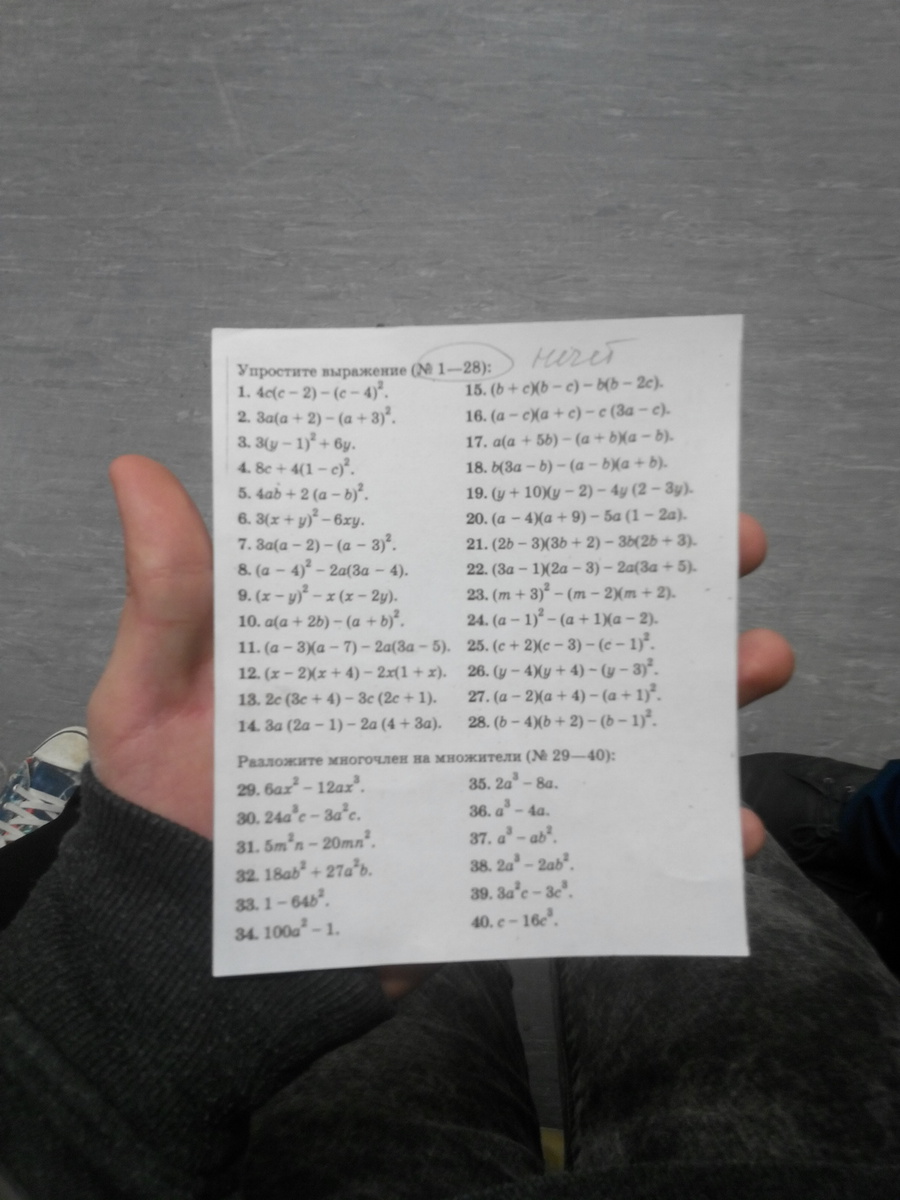 Упростите выражение (№ 1—28): нечет
1. 4c(c − 2) − (c − 4)².
2. 3a(a + 2) − (a + 3)².
3. 3(y − 1)² + 6y.
4. 8c + 4(1 − c)².
5. 4ab + 2 (a − b)².
6. 3(x + y)² − 6xy.
7. 3a(a − 2) − (a − 3)².
8. (a − 4)² − 2a(3a − 4).
9. (x − y)² − x (x − 2y).
10. a(a + 2b) − (a + b)².
11. (a − 3)(a − 7) − 2a(3a − 5).
12. (x − 2)(x + 4) − 2x(1 + x).
13. 2c (3c + 4) − 3c (2c + 1).
14. 3a (2a − 1) − 2a (4 + 3a).
15. (b + c)(b − c) − b(b − 2c).
16. (a − c)(a + c) − c (3a − c).
17. a(a + 5b) − (a + b)(a − b).
18. b(3a − b) − (a − b)(a + b).
19. (y + 10)(y − 2) − 4y (2 − 3y).
20. (a − 4)(a + 9) − 5a (1 − 2a).
21. (2b − 3)(3b + 2) − 3b(2b + 3).
22. (3a − 1)(2a − 3) − 2a(3a + 5).
23. (m + 3)² − (m − 2)(m + 2).
24. (a − 1)² − (a + 1)(a − 2).
25. (c + 2)(c − 3) − (c − 1)².
26. (y − 4)(y + 4) − (y − 3)².
27. (a − 2)(a + 4) − (a + 1)².
28. (b − 4)(b + 2) − (b − 1)².
Разложите многочлен на множители (№ 29—40):
29. 6ax² − 12ax³.
30. 24a³c − 3a²c.
31. 5m²n − 20mn².
32. 18ab² + 27a²b.
33. 1 − 64b².
34. 100a² − 1.
35. 2a³ − 8a.
36. a³ − 4a.
37. a³ − ab².
38. 2a³ − 2ab².
39. 3a²c − 3c³.
40. c − 16c³.